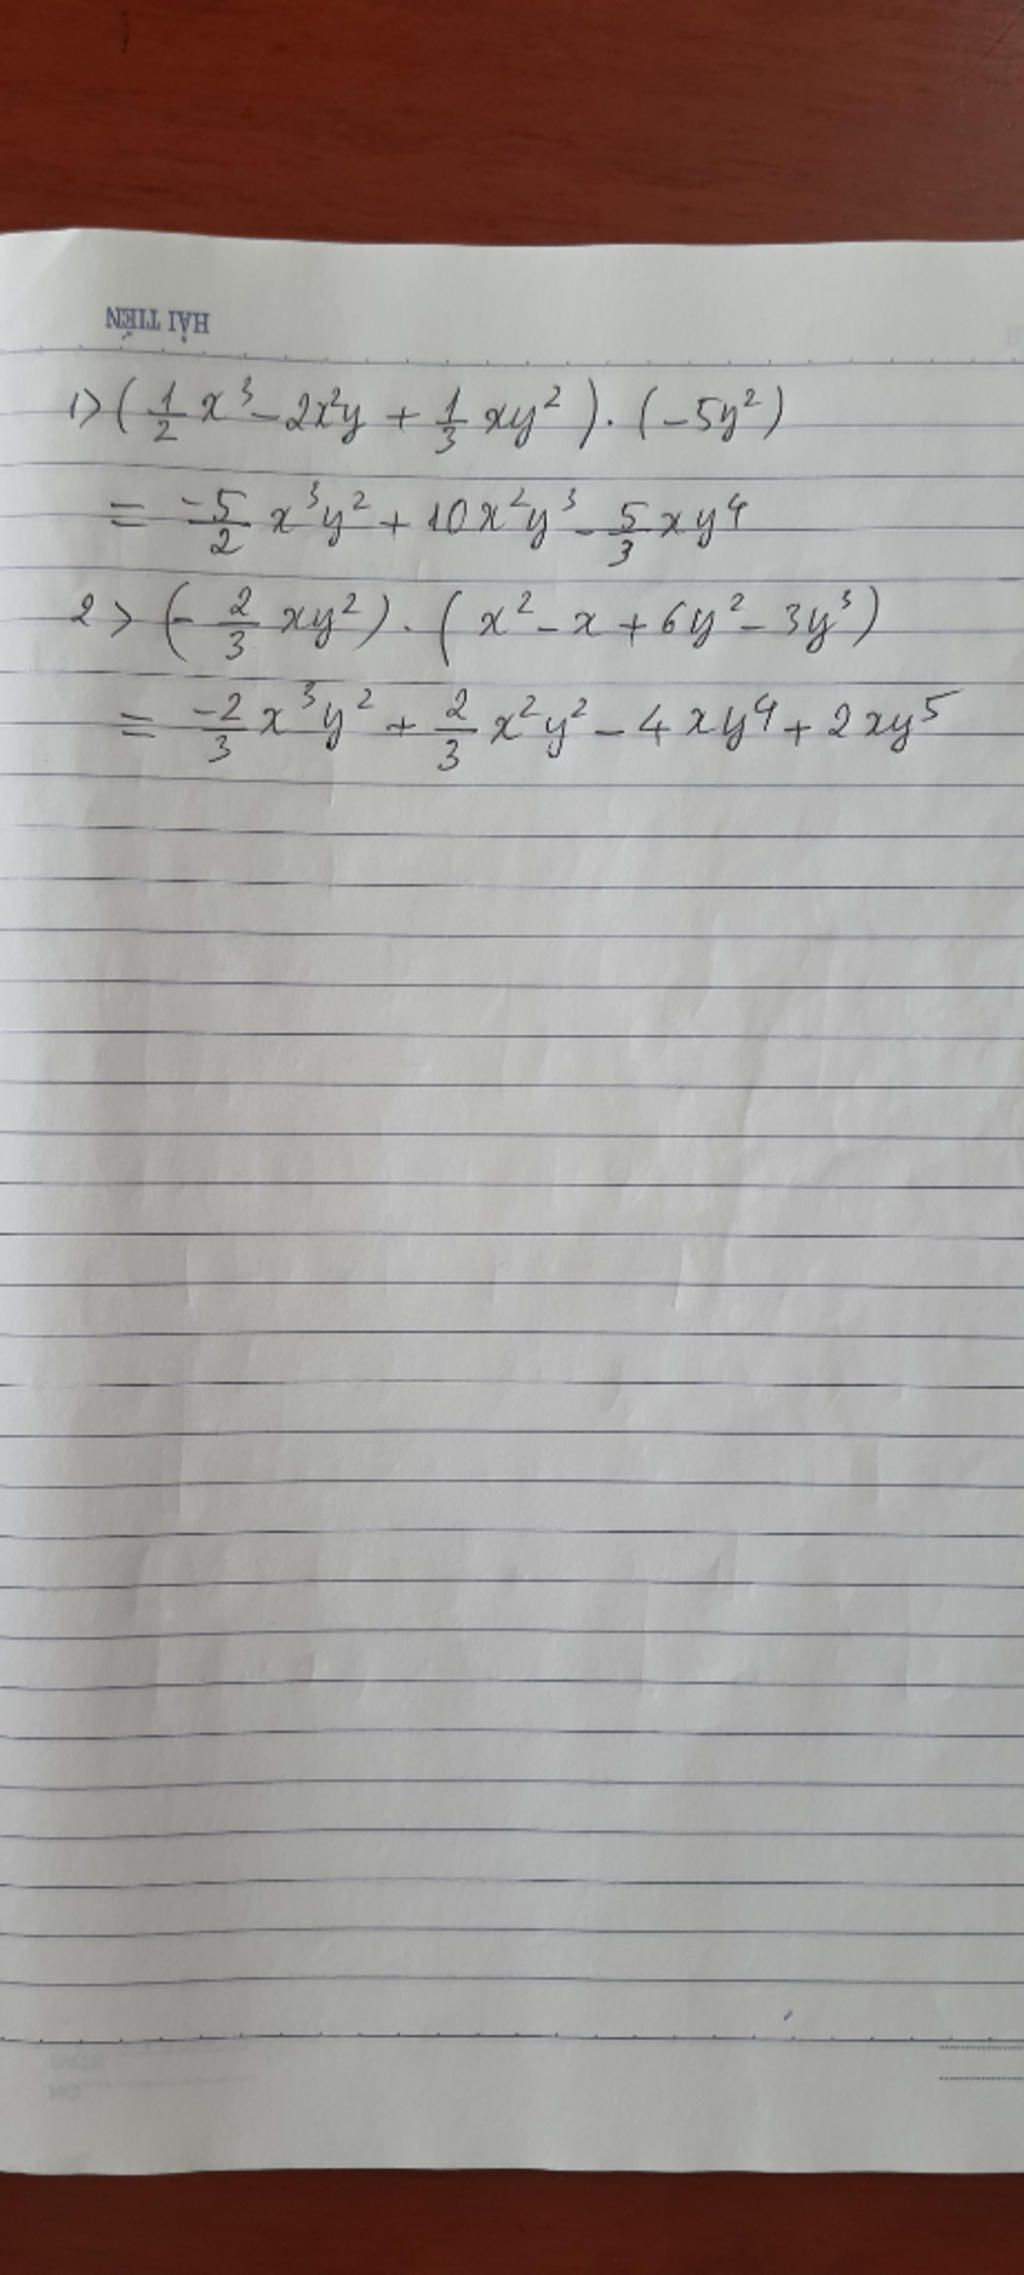 HẢI TIẾN
1> (1/2 x³ - 2x²y + 1/3 xy²) . (-5y²)
= -5/2 x³y² + 10x²y³ - 5/3 xy⁴
2> (- 2/3 xy²) . (x² - x + 6y² - 3y³)
= -2/3 x³y² + 2/3 x²y² - 4xy⁴ + 2xy⁵